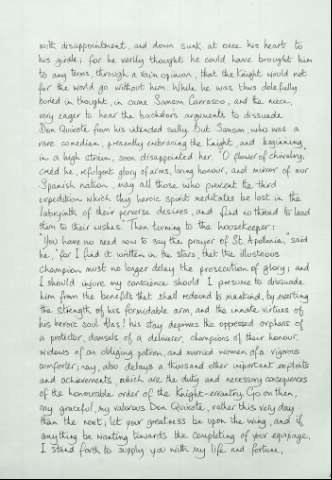 with disappointment, and down sunk at once his heart to
his girdle; for he verily thought he could have brought him
to any terms, through a vain opinion, that the Knight would not
for the world go without him. While he was thus dolefully
buried in thought, in came Samson Carrasco, and the niece,
very eager to hear the bachelor's arguments to dissuade
Don Quixote from his intended sally. But Samson, who was a
rare comedian, presently embracing the Knight, and beginning
in a high strain, soon disappointed her. "O flower of chivalry,"
cried he, "refulgent glory of arms, living honour, and mirror of our
Spanish nation, may all those who prevent the third
expedition which thy heroic spirit meditates be lost in the
labyrinth of their perverse desires, and find no thread to lead
them to their wishes." Then turning to the housekeeper:
"You have no need now to say the prayer of St. Apolonia," said
he, "for I find it written in the stars, that the illustrious
champion must no longer delay the prosecution of glory; and
I should injure my conscience should I presume to dissuade
him from the benefits that shall redound to mankind, by exerting
the strength of his formidable arm, and the innate virtues of
his heroic soul. Alas! his stay deprives the oppressed orphans of
a protector, damsels of a deliverer, champions of their honour,
widows of an obliging patron, and married women of a vigorous
comforter; nay, also delays a thousand other important exploits
and achievements, which are the duty and necessary consequences
of the honourable order of the Knight-errantry. Go on then,
my graceful, my valorous Don Quixote, rather this very day
than the next; let your greatness be upon the wing, and if
anything be wanting towards the completing of your equipage,
I stand forth to supply you with my life and fortune,